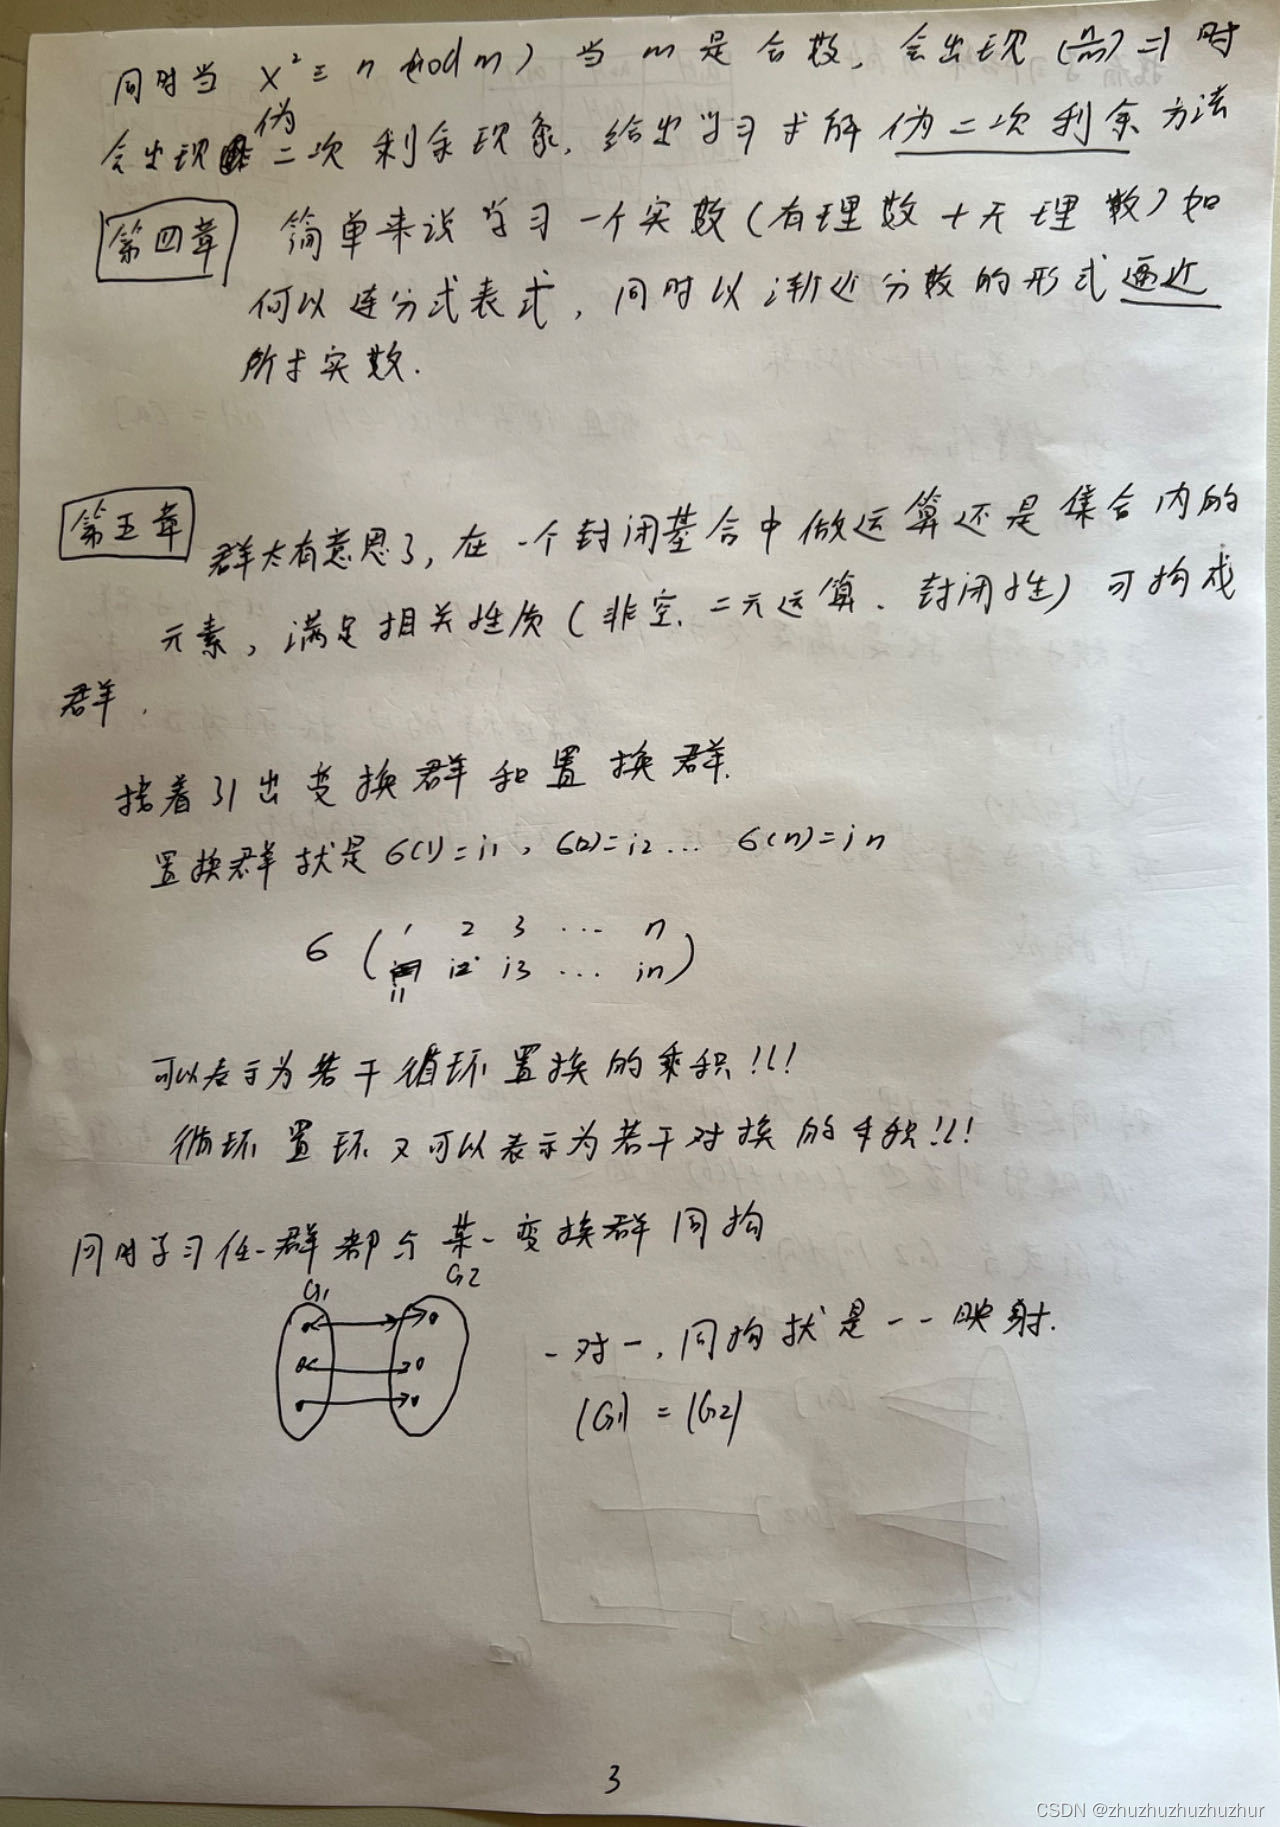 同时当 x² ≡ n (mod m) 当 m 是合数, 会出现 (n/m) = 1 时
会出现伪二次剩余现象, 给出学习求解伪二次剩余方法
第四章 简单来说学习一个实数(有理数+无理数)如
何以连分式表式, 同时以渐近分数的形式逼近
所求实数.
第五章 群太有意思了, 在一个封闭集合中做运算还是集合内的
元素, 满足相关性质(非空、二元运算、封闭性)可构成
群.
接着引出变换群和置换群.
置换群就是 6(1)=i1, 6(2)=i2 ... 6(n)=in
6 ( 1 2 3 ... n
i1 i2 i3 ... in )
可以表示为若干循环置换的乘积!!!
循环置环又可以表示为若干对换的乘积!!!
同时学习任一群都与某一变换群同构
G1 G2
一对一, 同构就是一一映射.
|G1| = |G2|
3
CSDN @zhuzhuzhuzhuzhur